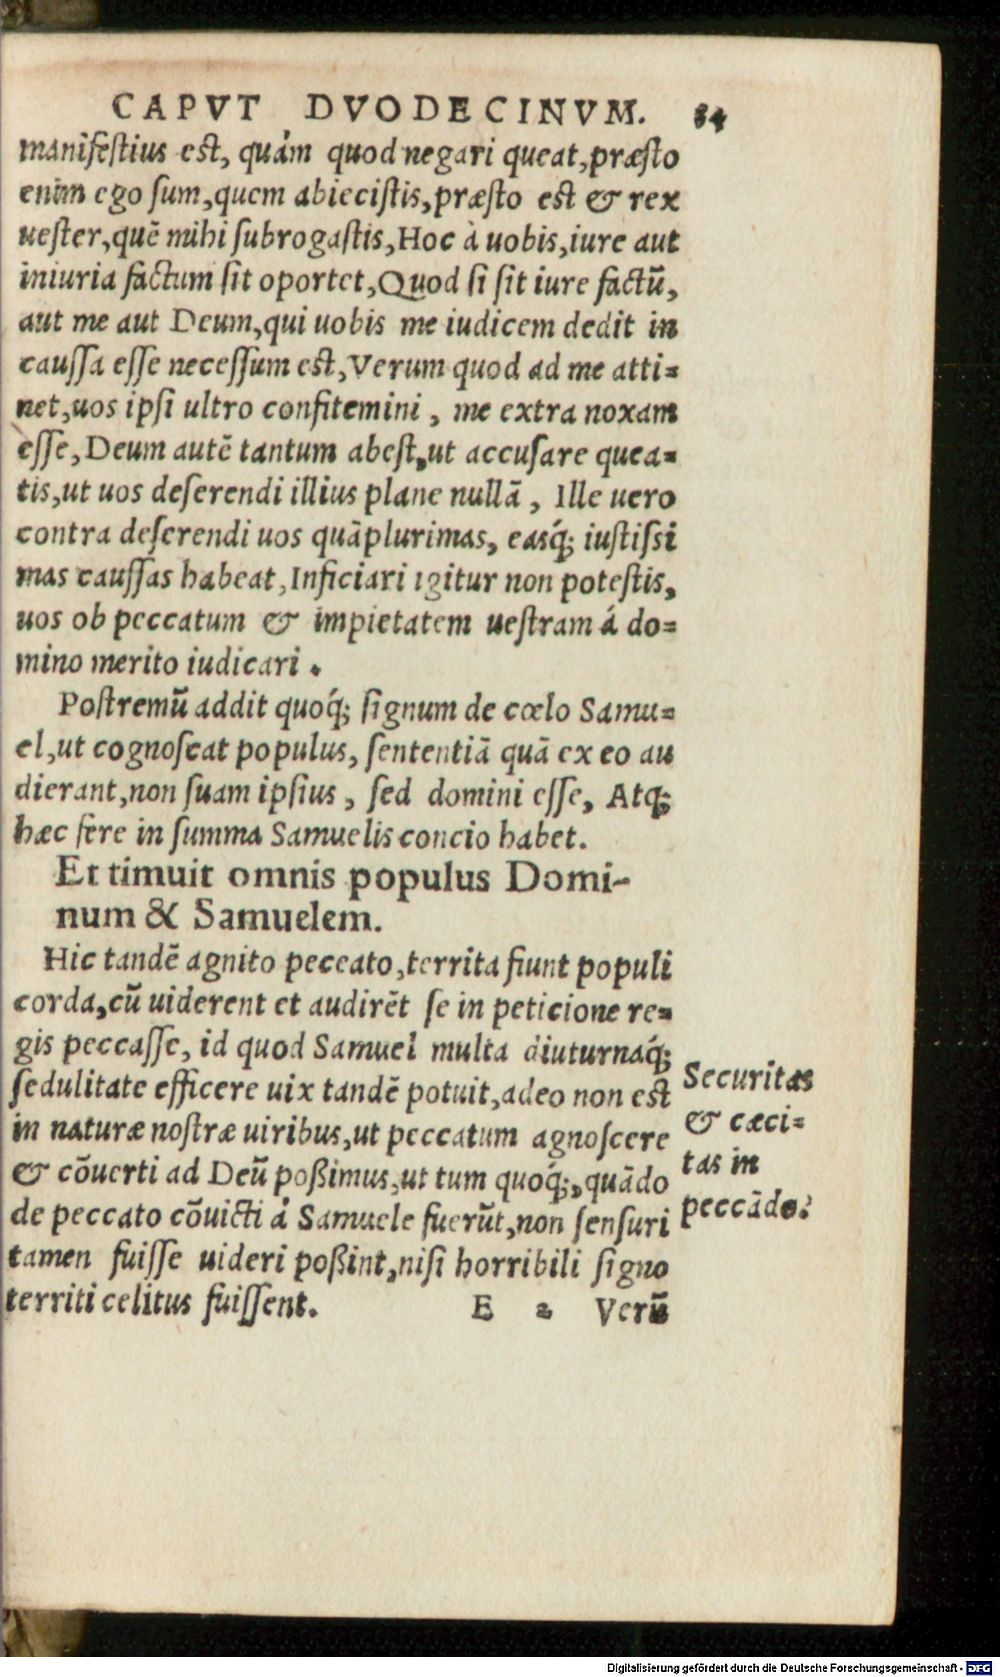 CAPVT DVODECINVM. 84
manifestius est, quám quod negari queat, præsto
enim ego sum, quem abiecistis, præsto est & rex
uester, quē mihi subrogastis, Hoc à uobis, iure aut
iniuria factum sit oportet, Quod si sit iure factū,
aut me aut Deum, qui uobis me iudicem dedit in
caussa esse necessum est, Verum quod ad me atti=
net, uos ipsi ultro confitemini, me extra noxam
esse, Deum autē tantum abest, ut accusare quea=
tis, ut uos deserendi illius plane nullā, Ille uero
contra deserendi uos quāplurimas, easq́; iustissi
mas caussas habeat, Inficiari igitur non potestis,
uos ob peccatum & impietatem uestram á do=
mino merito iudicari.
Postremū addit quoq́; signum de cœlo Samu=
el, ut cognoscat populus, sententiā quā ex eo au
dierant, non suam ipsius, sed domini esse, Atq;
hæc fere in summa Samuelis concio habet.
Et timuit omnis populus Domi-
num & Samuelem.
Hic tandē agnito peccato, territa fiunt populi
corda, cū uiderent et audirēt se in peticione re=
gis peccasse, id quod Samuel multa diuturnaq́;
sedulitate efficere uix tandē potuit, adeo non est
in naturæ nostræ uiribus, ut peccatum agnoscere
& cōuerti ad Deū poßimus, ut tum quoq́;, quādo
de peccato cōuicti á Samuele fuerūt, non sensuri
tamen fuisse uideri poßint, nisi horribili signo
territi celitus fuissent.
E 2 Verū
Securitas
& cæci=
tas in
peccādo.
Digitalisierung gefördert durch die Deutsche Forschungsgemeinschaft - DFG